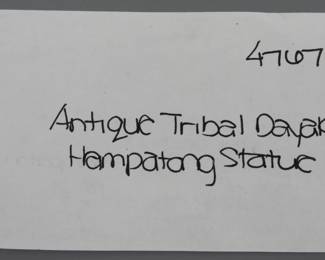 4767
Antique Tribal Dayak
Hampatong Statue